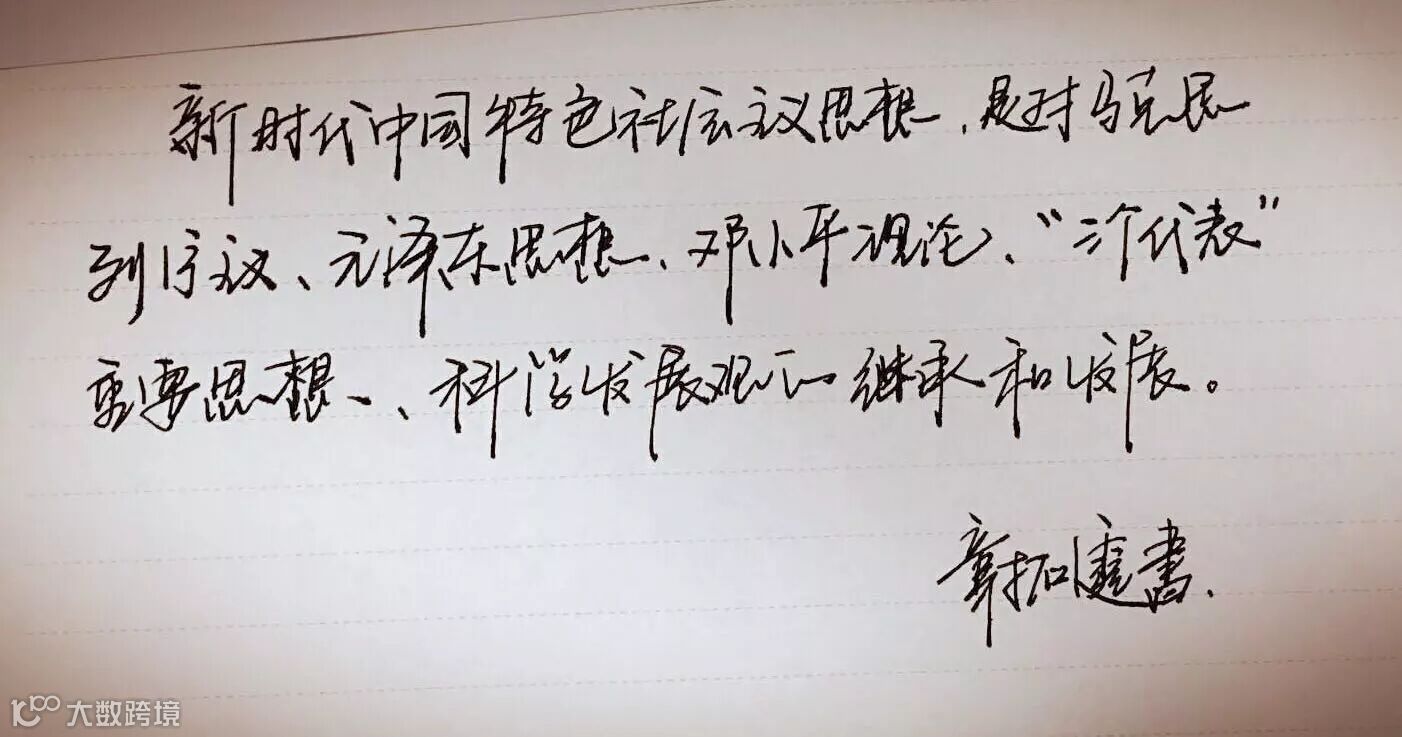 新时代中国特色社会主义思想，是对马克思
列宁主义、毛泽东思想、邓小平理论、“三个代表”
重要思想、科学发展观的继承和发展。
章拓 書.
大数跨境